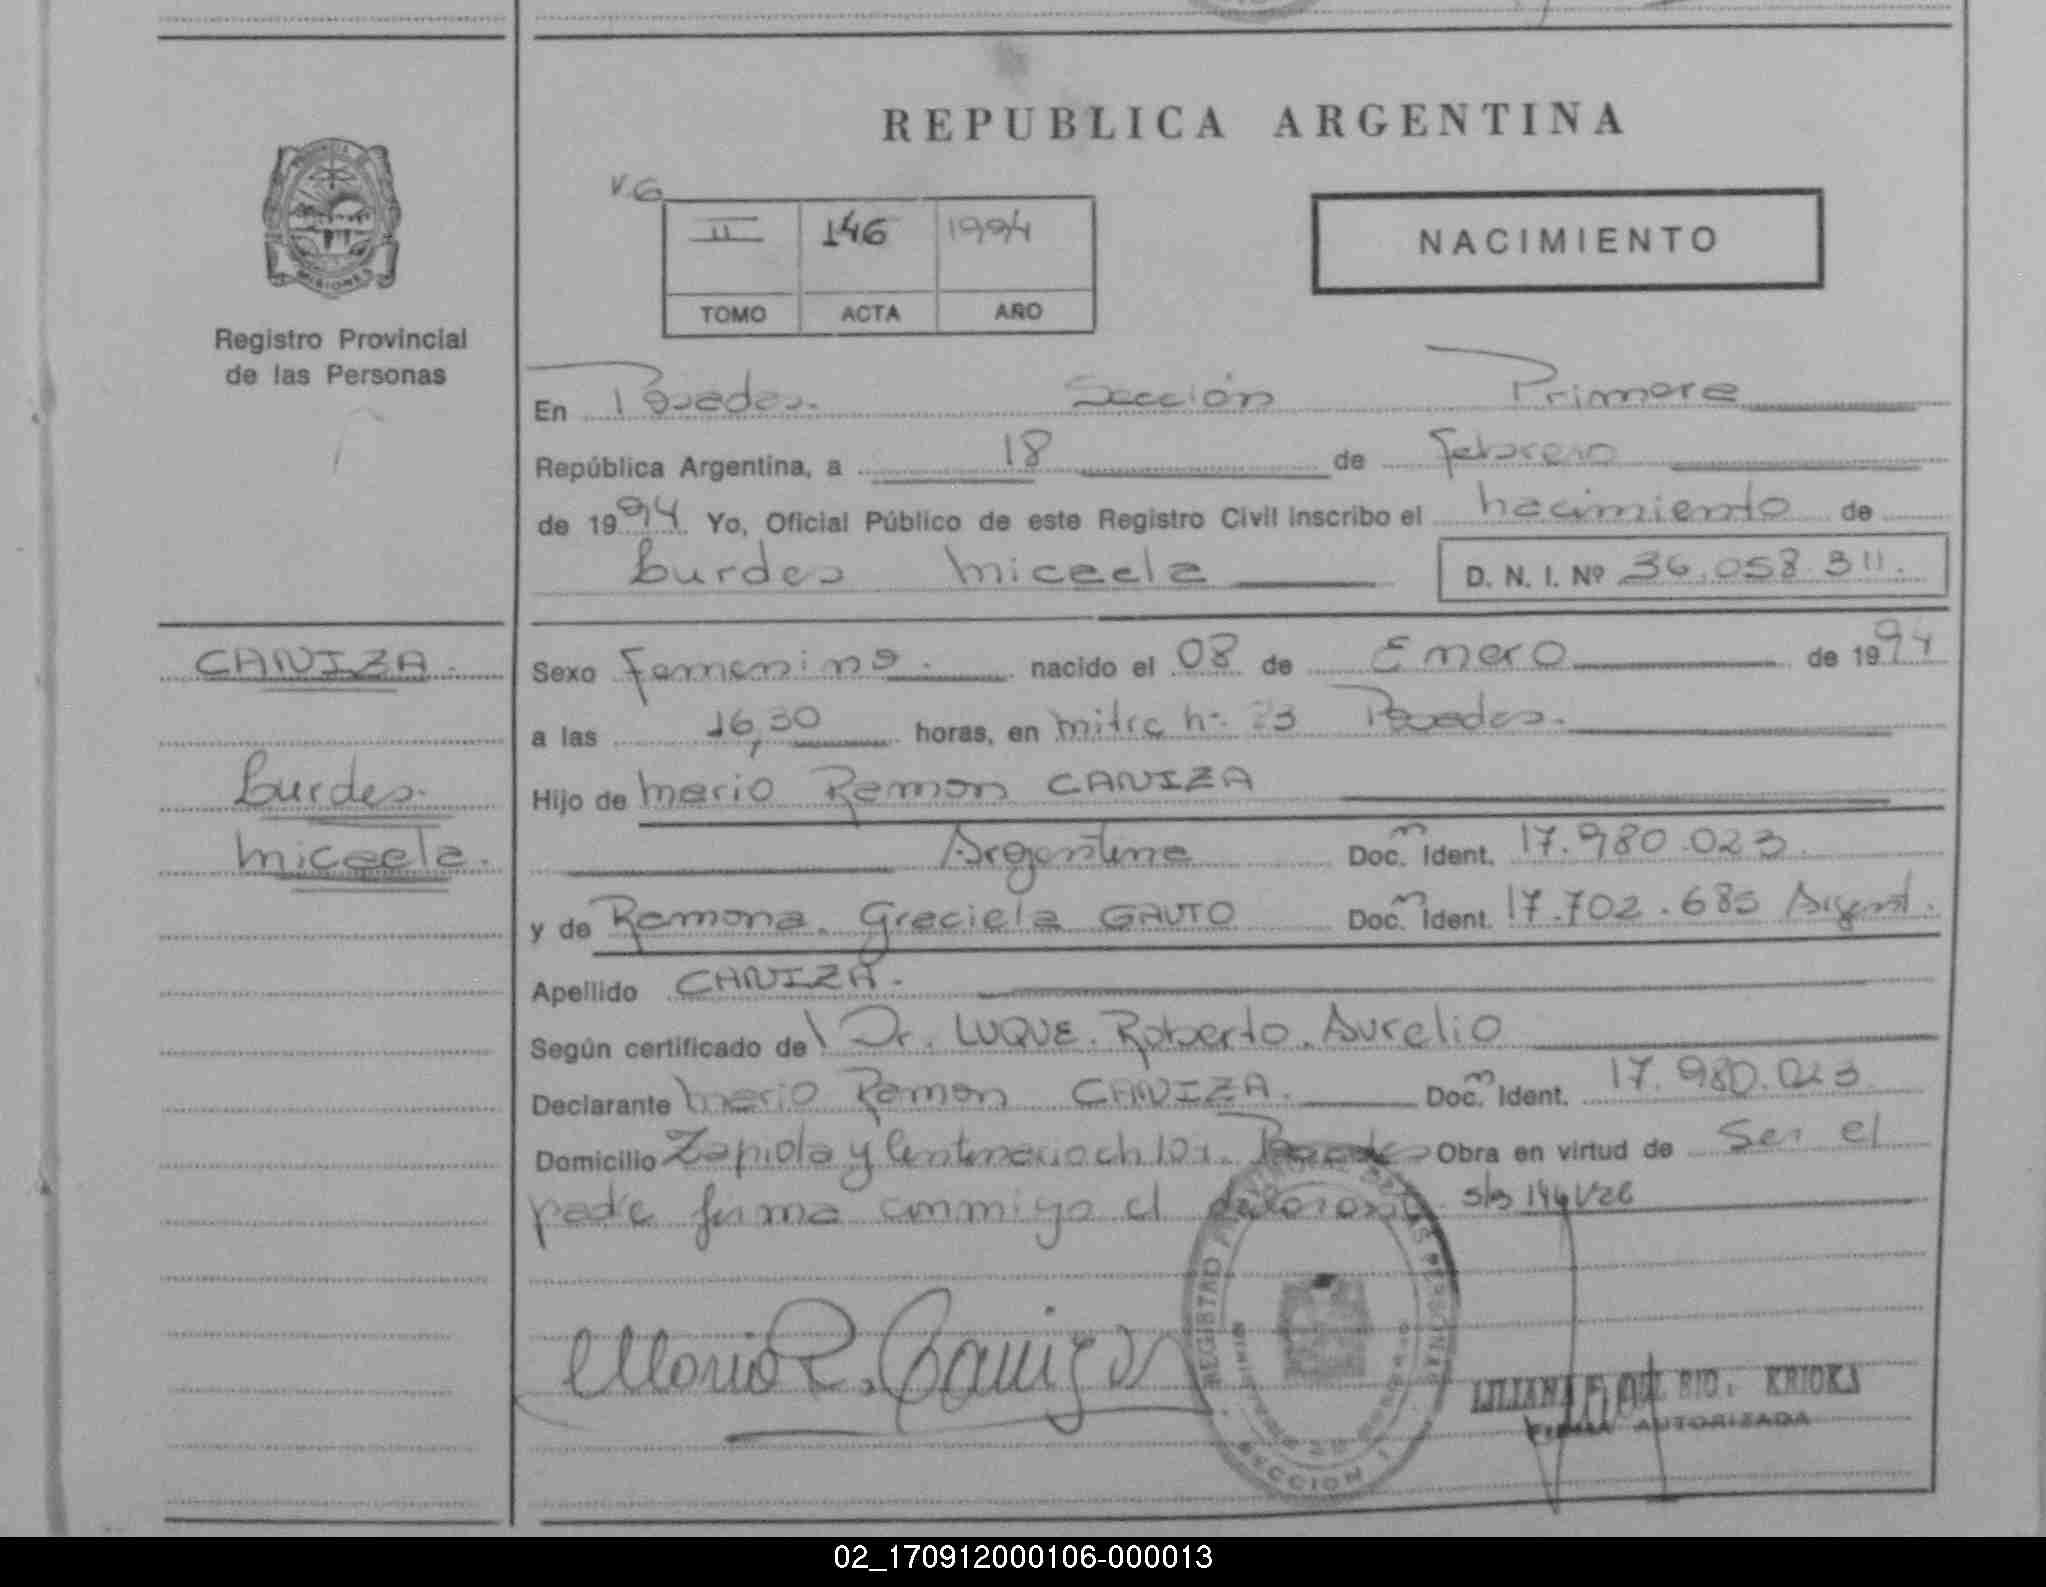 REPUBLICA ARGENTINA
V.G
II 146 1994
TOMO ACTA AÑO
NACIMIENTO
PROVINCIA DE
MISIONES
Registro Provincial
de las Personas
En Posadas. Sección Primera
República Argentina, a 18 de febrero
de 1994 Yo, Oficial Público de este Registro Civil inscribo el nacimiento de
Lurdes Micaela D. N. I. Nº 36.058.311.
CANIZA.
Lurdes.
Micaela.
Sexo Femenino. nacido el 08 de Enero de 1994
a las 16,30 horas, en Mitre nº 23 Posadas.
Hijo de Mario Ramon CANIZA
Argentina Doc. Ident. 17.980.023.
y de Ramona. Graciela GAUTO Doc. Ident. 17.702.685 Argent.
Apellido CANIZA.
Según certificado de Dr. LUQUE. Roberto. Aurelio
Declarante Mario Ramon CANIZA. Doc. Ident. 17.980.023.
Domicilio Zapiola y Centenario ch 101. Posadas Obra en virtud de Ser el
padre firma conmigo el s/b
Mario R. Caniza
SECCION 1
LILIANA DEL RIO.
FIRMA AUTORIZADA
02_170912000106-000013